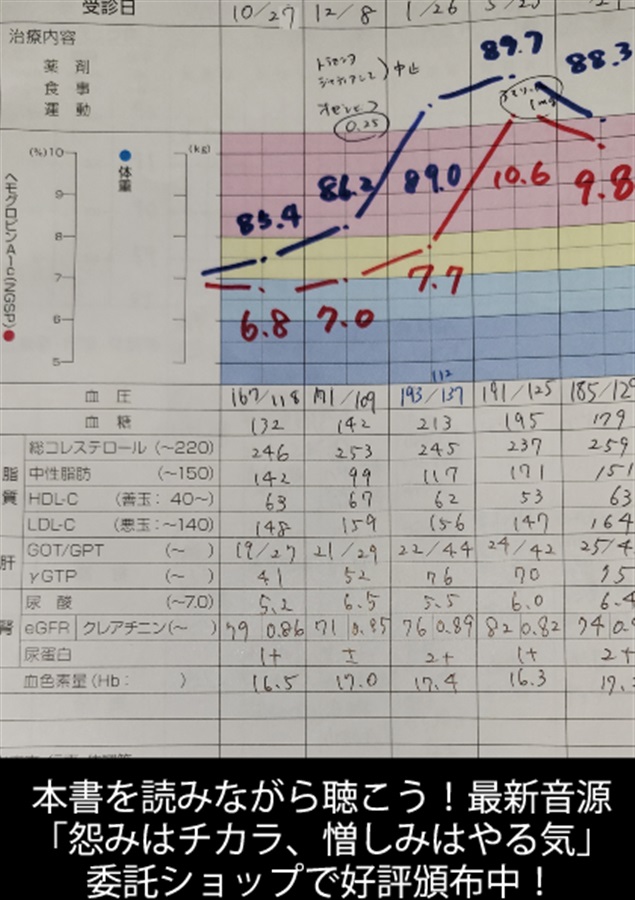 受診日 10/27 12/8 1/26
治療内容
薬 剤
食 事
運 動
中止
0.25
1mg
89.7 88.3
(%) (kg)
10
9
8
7
6
5
体重
ヘモグロビンA1c(NGSP)
85.4 86.2 89.0 10.6 9.8
6.8 7.0 7.7
112
血 圧 167/118 171/109 193/137 191/125 185/129
血 糖 132 142 213 195 179
脂質
総コレステロール (~220) 246 253 245 237 259
中性脂肪 (~150) 142 99 117 171 151
HDL-C (善玉: 40~) 63 67 62 53 63
LDL-C (悪玉: ~140) 148 159 156 147 164
肝
GOT/GPT (~ ) 19/27 21/29 22/44 24/42 25/4
γGTP (~ ) 41 52 76 70
尿 酸 (~7.0) 5.2 6.5 5.5 6.0 6.4
腎
eGFR クレアチニン(~ ) 79 0.86 71 76 0.89 82 0.82 74
尿蛋白 1+ ± 2+ 1+ 2+
血色素量(Hb: ) 16.5 17.0 17.4 16.3
本書を読みながら聴こう!最新音源
「怨みはチカラ、憎しみはやる気」
委託ショップで好評頒布中!